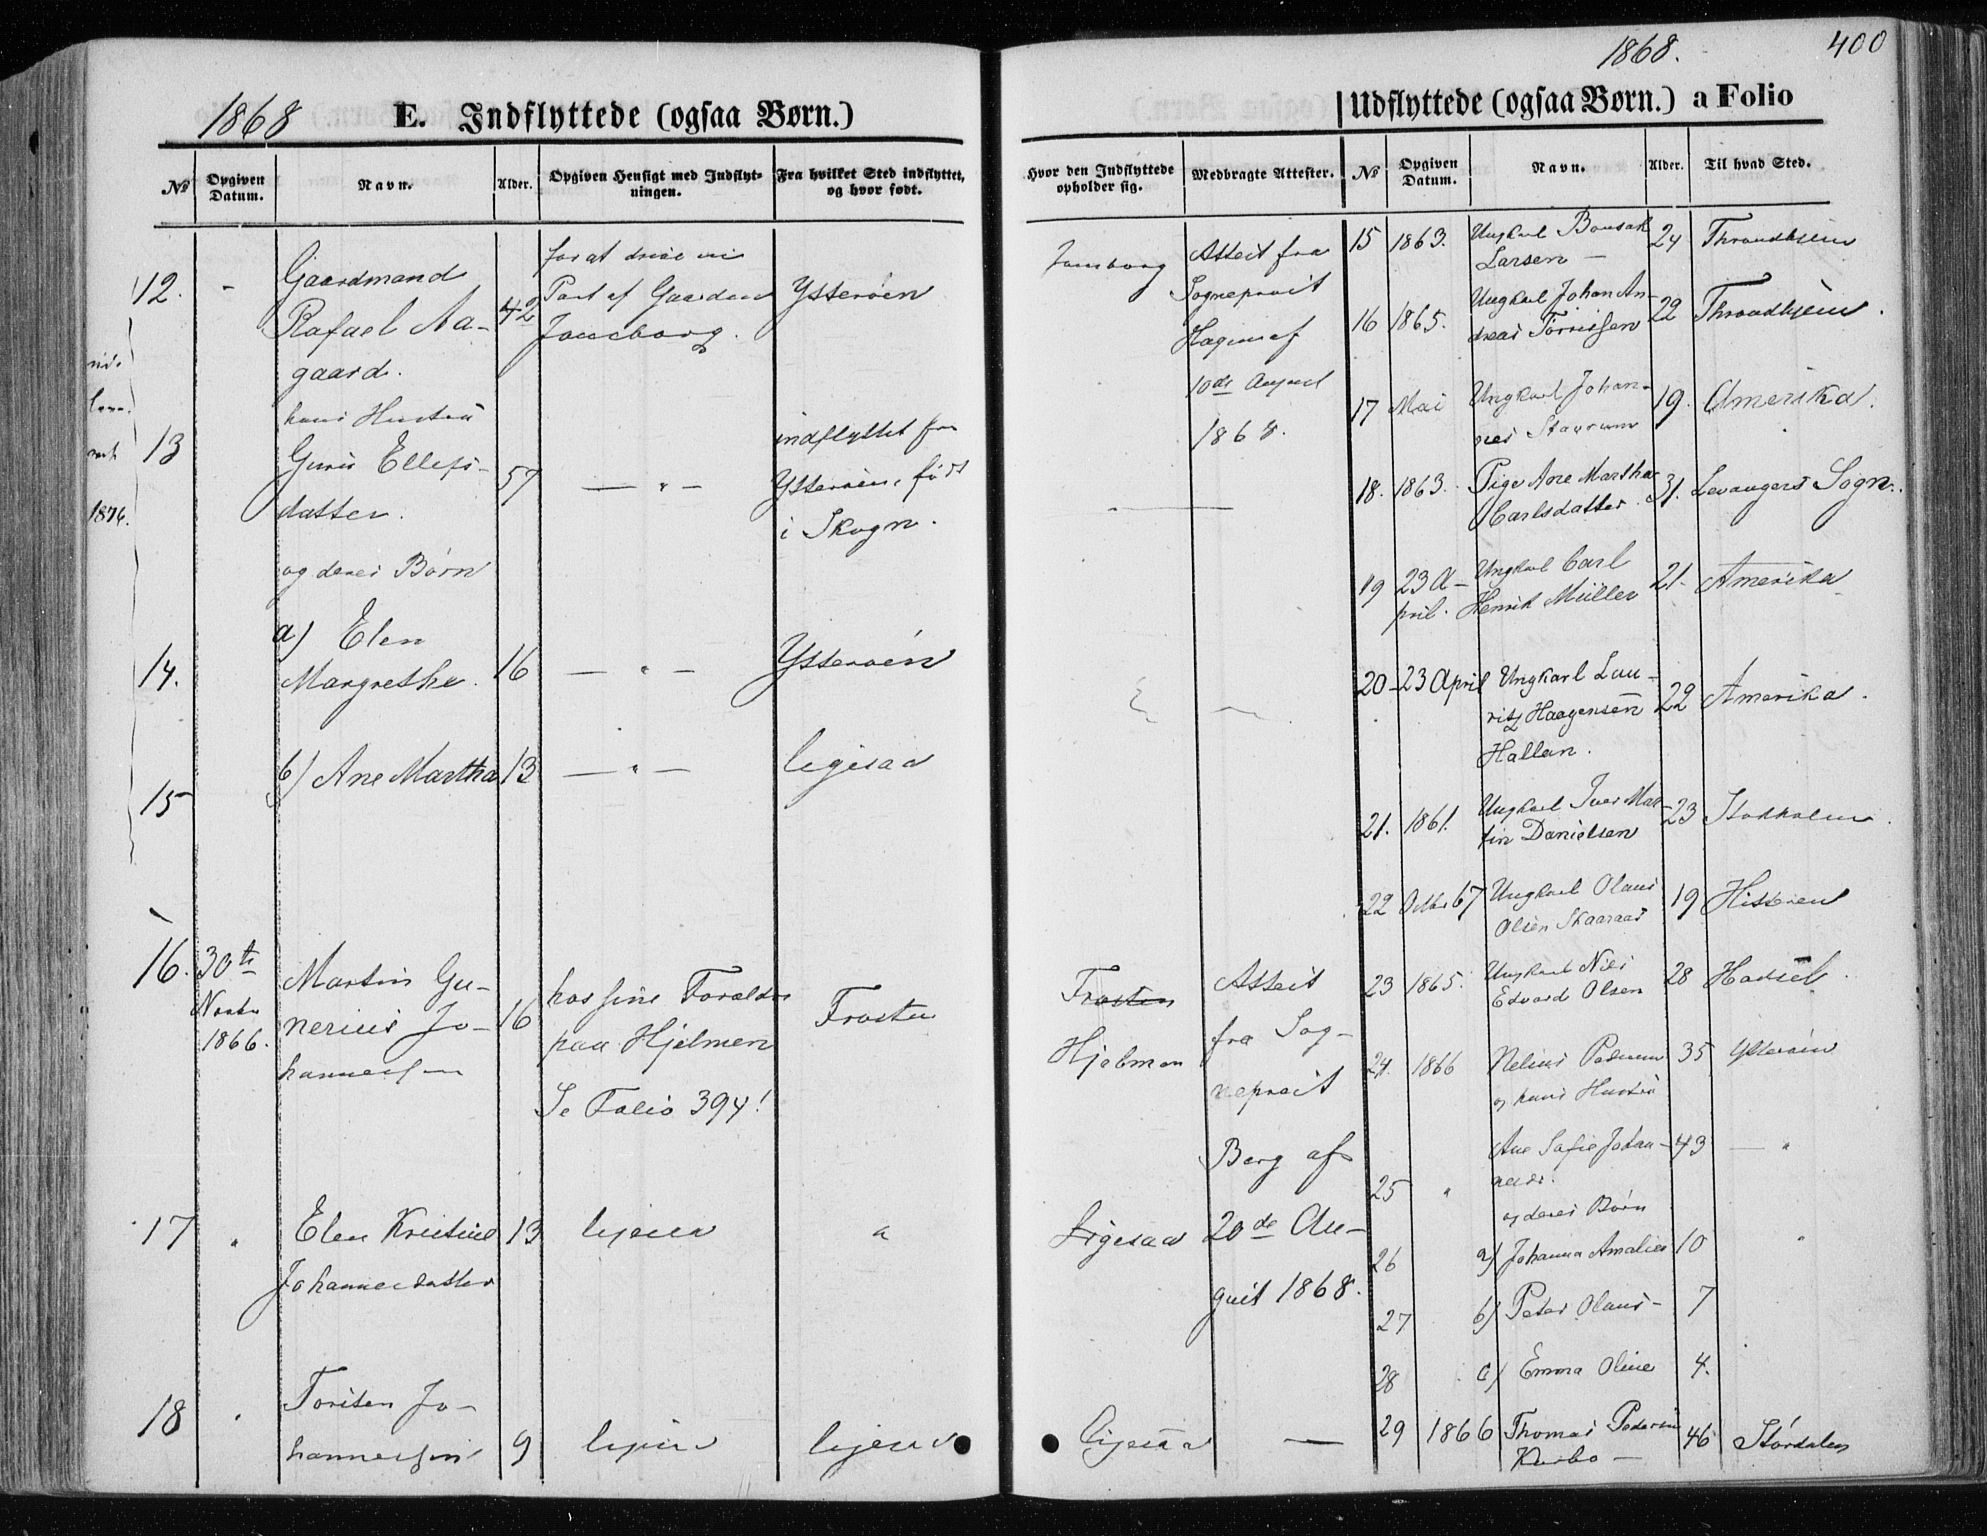 1868
E. Indflyttede (ogsaa Børn.)
№
Opgiven Datum.
Navn.
Alder.
Opgiven Hensigt med Indflytningen.
Fra hvilket Sted indflyttet, og hvor født.
12.
-
Gaardmand
Rafael Aa-
gaard.
42
for at drive
Part af Gaarden
Ysterøen
13
hans Hustru
Guru Ellefs-
datter.
57
— " —
indflyttet fra
Ysterøen, født
i Skogn.
1876.
og deres Børn
14.
a) Elen
Margrethe.
16
— " —
Ysterøen
15
b) Ane Martha
13
— " —
ligesaa
16.
30te
Novbr
1866.
Martin Gu-
nerius Jo-
hannessen
16
hos sine Forældre
paa Hjelmen
Se Folio 394!
Frosten
17
"
Elen Kristine
Johannesdatter
13
ligesaa
"
18
"
Torsten Jo-
hannessen
9
ligesaa
ligesaa
1868.
400
Udflyttede (ogsaa Børn.) a Folio
Hvor den Indflyttede opholder sig.
Medbragte Attester.
№
Opgiven Datum.
Navn.
Alder.
Til hvad Sted.
Attest fra
Sogneprest
Hagen af
10de August
1868.
Frosten
Hjelmen
Attest
fra Sog-
neprest
Berg af
20de Au-
gust 1868.
Ligesaa
Ligesaa —
15 1863. Ungkarl Bonsak
Larsen —
24 Throndhjem
16 1865. Ungkarl Johan An-
dreas Tørrissen
22 Throndhjem.
17 Mai Ungkarl Johan-
nes
19. Amerika.
18. 1863. Pige Ane Martha
Carlsdatter.
31. Levangers Sogn.
19 23 A-
pril.
Ungkarl Carl
Henrik Müller
21. Amerika
20 - 23 April Ungkarl Lau-
ritz Haagensen
Hallan.
22 Amerika.
21. 1861. Ungkarl Iver Mar-
tin Danielsen
23 Stokholm.
22 Octbr 67 Ungkarl Olaus
Olsen
19 Hitteren
23 1865. Ungkarl Nils
Edvard Olsen
28 Hadsel.
24. 1866 Nelius
og hans Hustru
35 Ysterøen
25 " Ane Sofie Johan-
nesdr.
43 — "
og deres Børn
26 a) Johanna Amalie 10 "
27 b) Peter Olaus - 7
28 c) Emma Oline 4.
29 1866 Thomas Pedersen
46 Størdalen